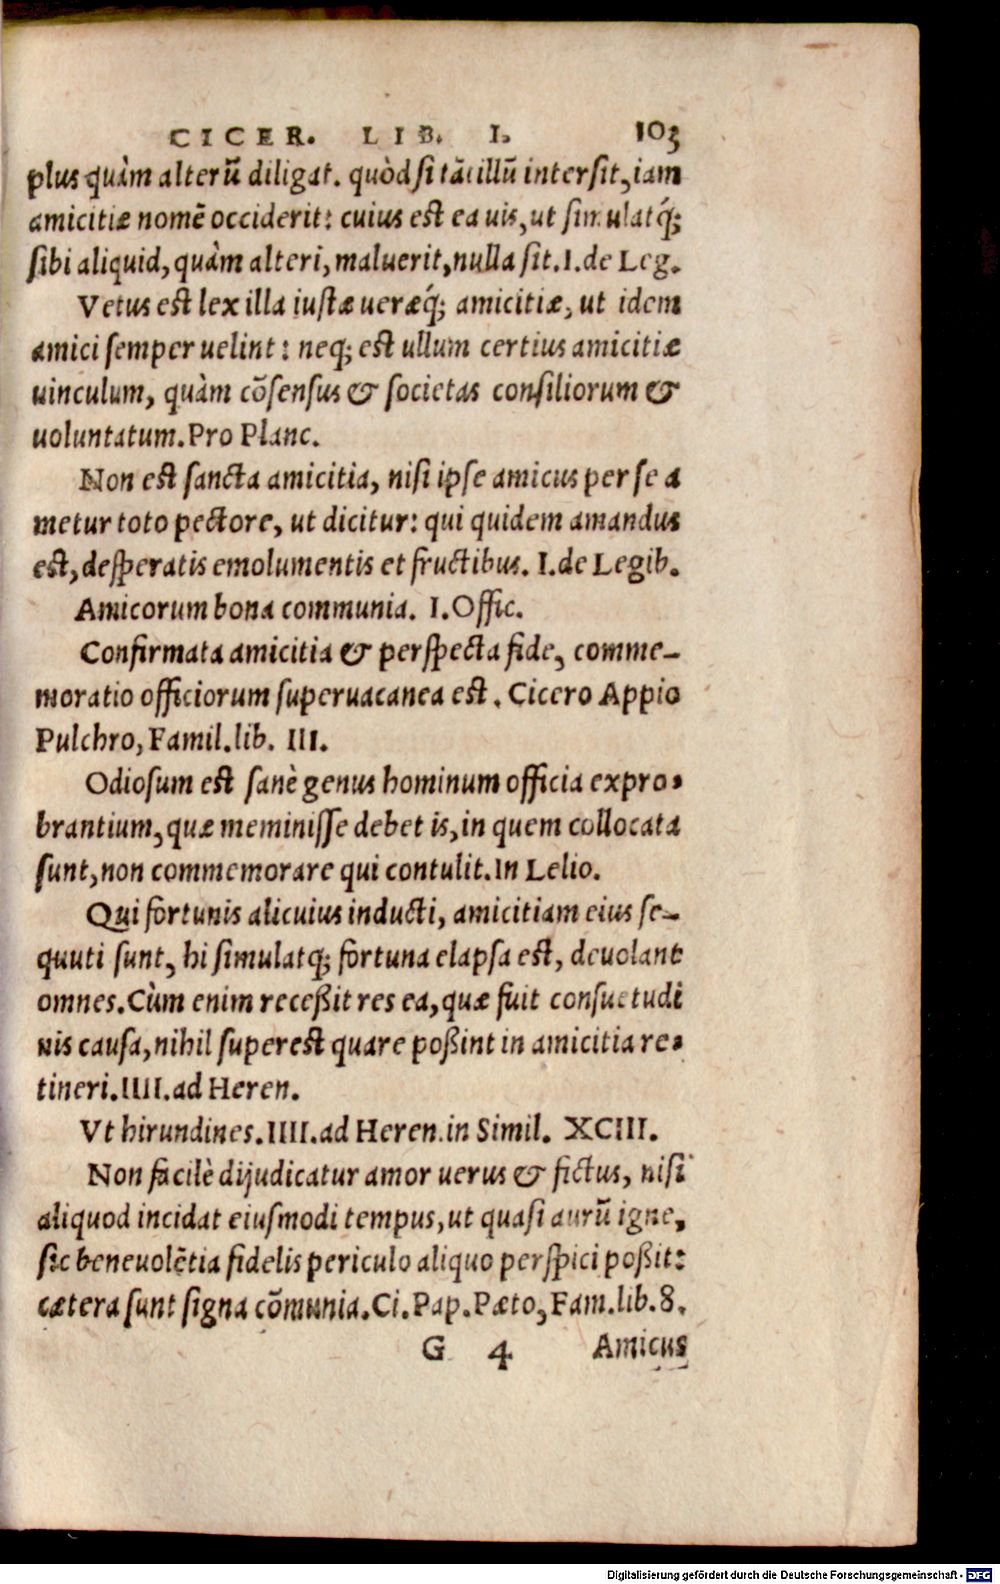 CICER. LIB. I. 103
plus quàm alterũ diligat. quòd si tãtillũ intersit, iam
amicitiæ nomẽ occiderit: cuius est ea uis, ut simulatq́;
sibi aliquid, quàm alteri, maluerit, nulla sit. I. de Leg.
Vetus est lex illa iustæ ueræq́; amicitiæ, ut idem
amici semper uelint: neq; est ullum certius amicitiæ
uinculum, quàm cõsensus & societas consiliorum &
uoluntatum. Pro Planc.
Non est sancta amicitia, nisi ipse amicus per se a
metur toto pectore, ut dicitur: qui quidem amandus
est, desperatis emolumentis et fructibus. I. de Legib.
Amicorum bona communia. I. Offic.
Confirmata amicitia & perspecta fide, comme-
moratio officiorum superuacanea est. Cicero Appio
Pulchro, Famil. lib. III.
Odiosum est sanè genus hominum officia expro-
brantium, quæ meminisse debet is, in quem collocata
sunt, non commemorare qui contulit. In Lelio.
Qui fortunis alicuius inducti, amicitiam eius se-
quuti sunt, hi simulatq; fortuna elapsa est, deuolant
omnes. Cùm enim receßit res ea, quæ fuit consuetudi
nis causa, nihil superest quare poßint in amicitia re-
tineri. IIII. ad Heren.
Vt hirundines. IIII. ad Heren. in Simil. XCIII.
Non facilè dijudicatur amor uerus & fictus, nisi
aliquod incidat eiusmodi tempus, ut quasi aurũ igne,
sic beneuolẽtia fidelis periculo aliquo perspici poßit:
cætera sunt signa cõmunia. Ci. Pap. Pæto, Fam. lib. 8.
G 4 Amicus
Digitalisierung gefördert durch die Deutsche Forschungsgemeinschaft - DFG